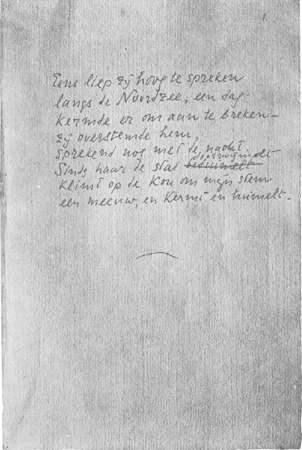 Eens liep zij hoog te spreken
langs de Noordzee, een dag
kermde er om aan te breken –
zij overstemde hem,
sprekend nog met de nacht.
Sinds haar de stad doorzwijmelt
klimt op de kou om mijn stem
een meeuw, en kermt en tuimelt.